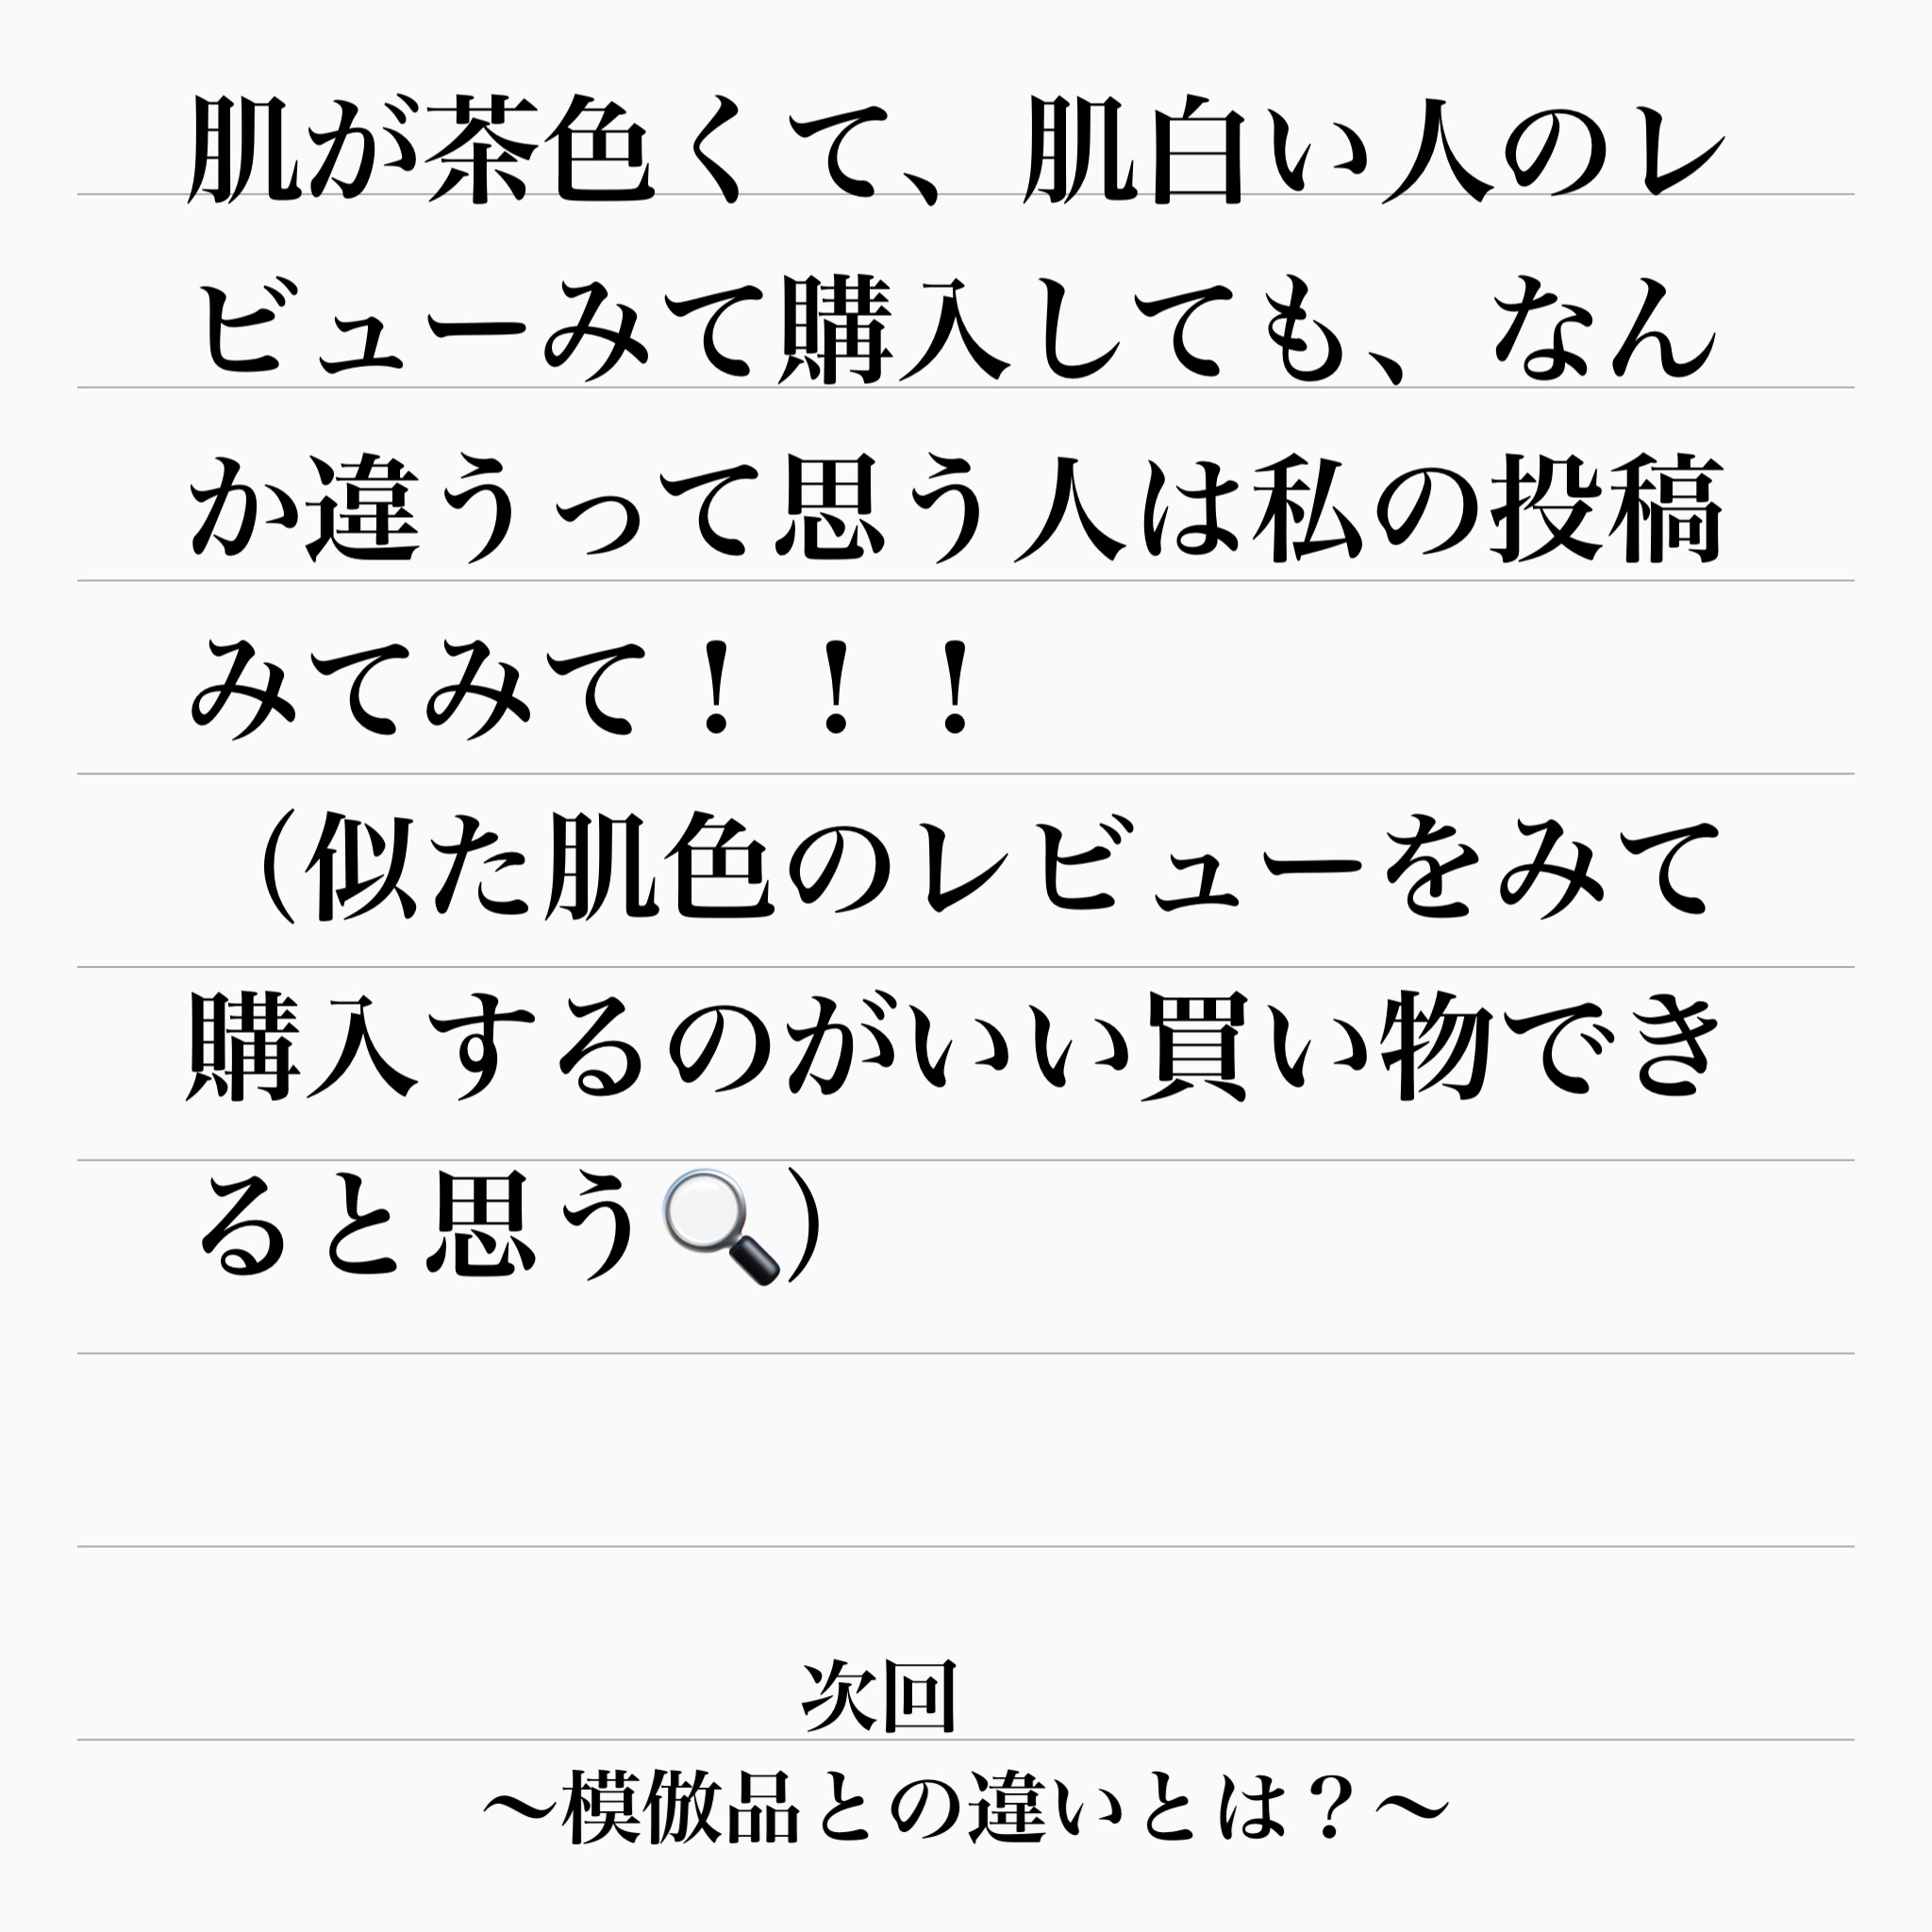 肌が茶色くて、肌白い人のレ
ビューみて購入しても、なん
か違うって思う人は私の投稿
みてみて！！！
（似た肌色のレビューをみて
購入するのがいい買い物でき
ると思う🔍）
次回
〜摸倣品との違いとは？〜